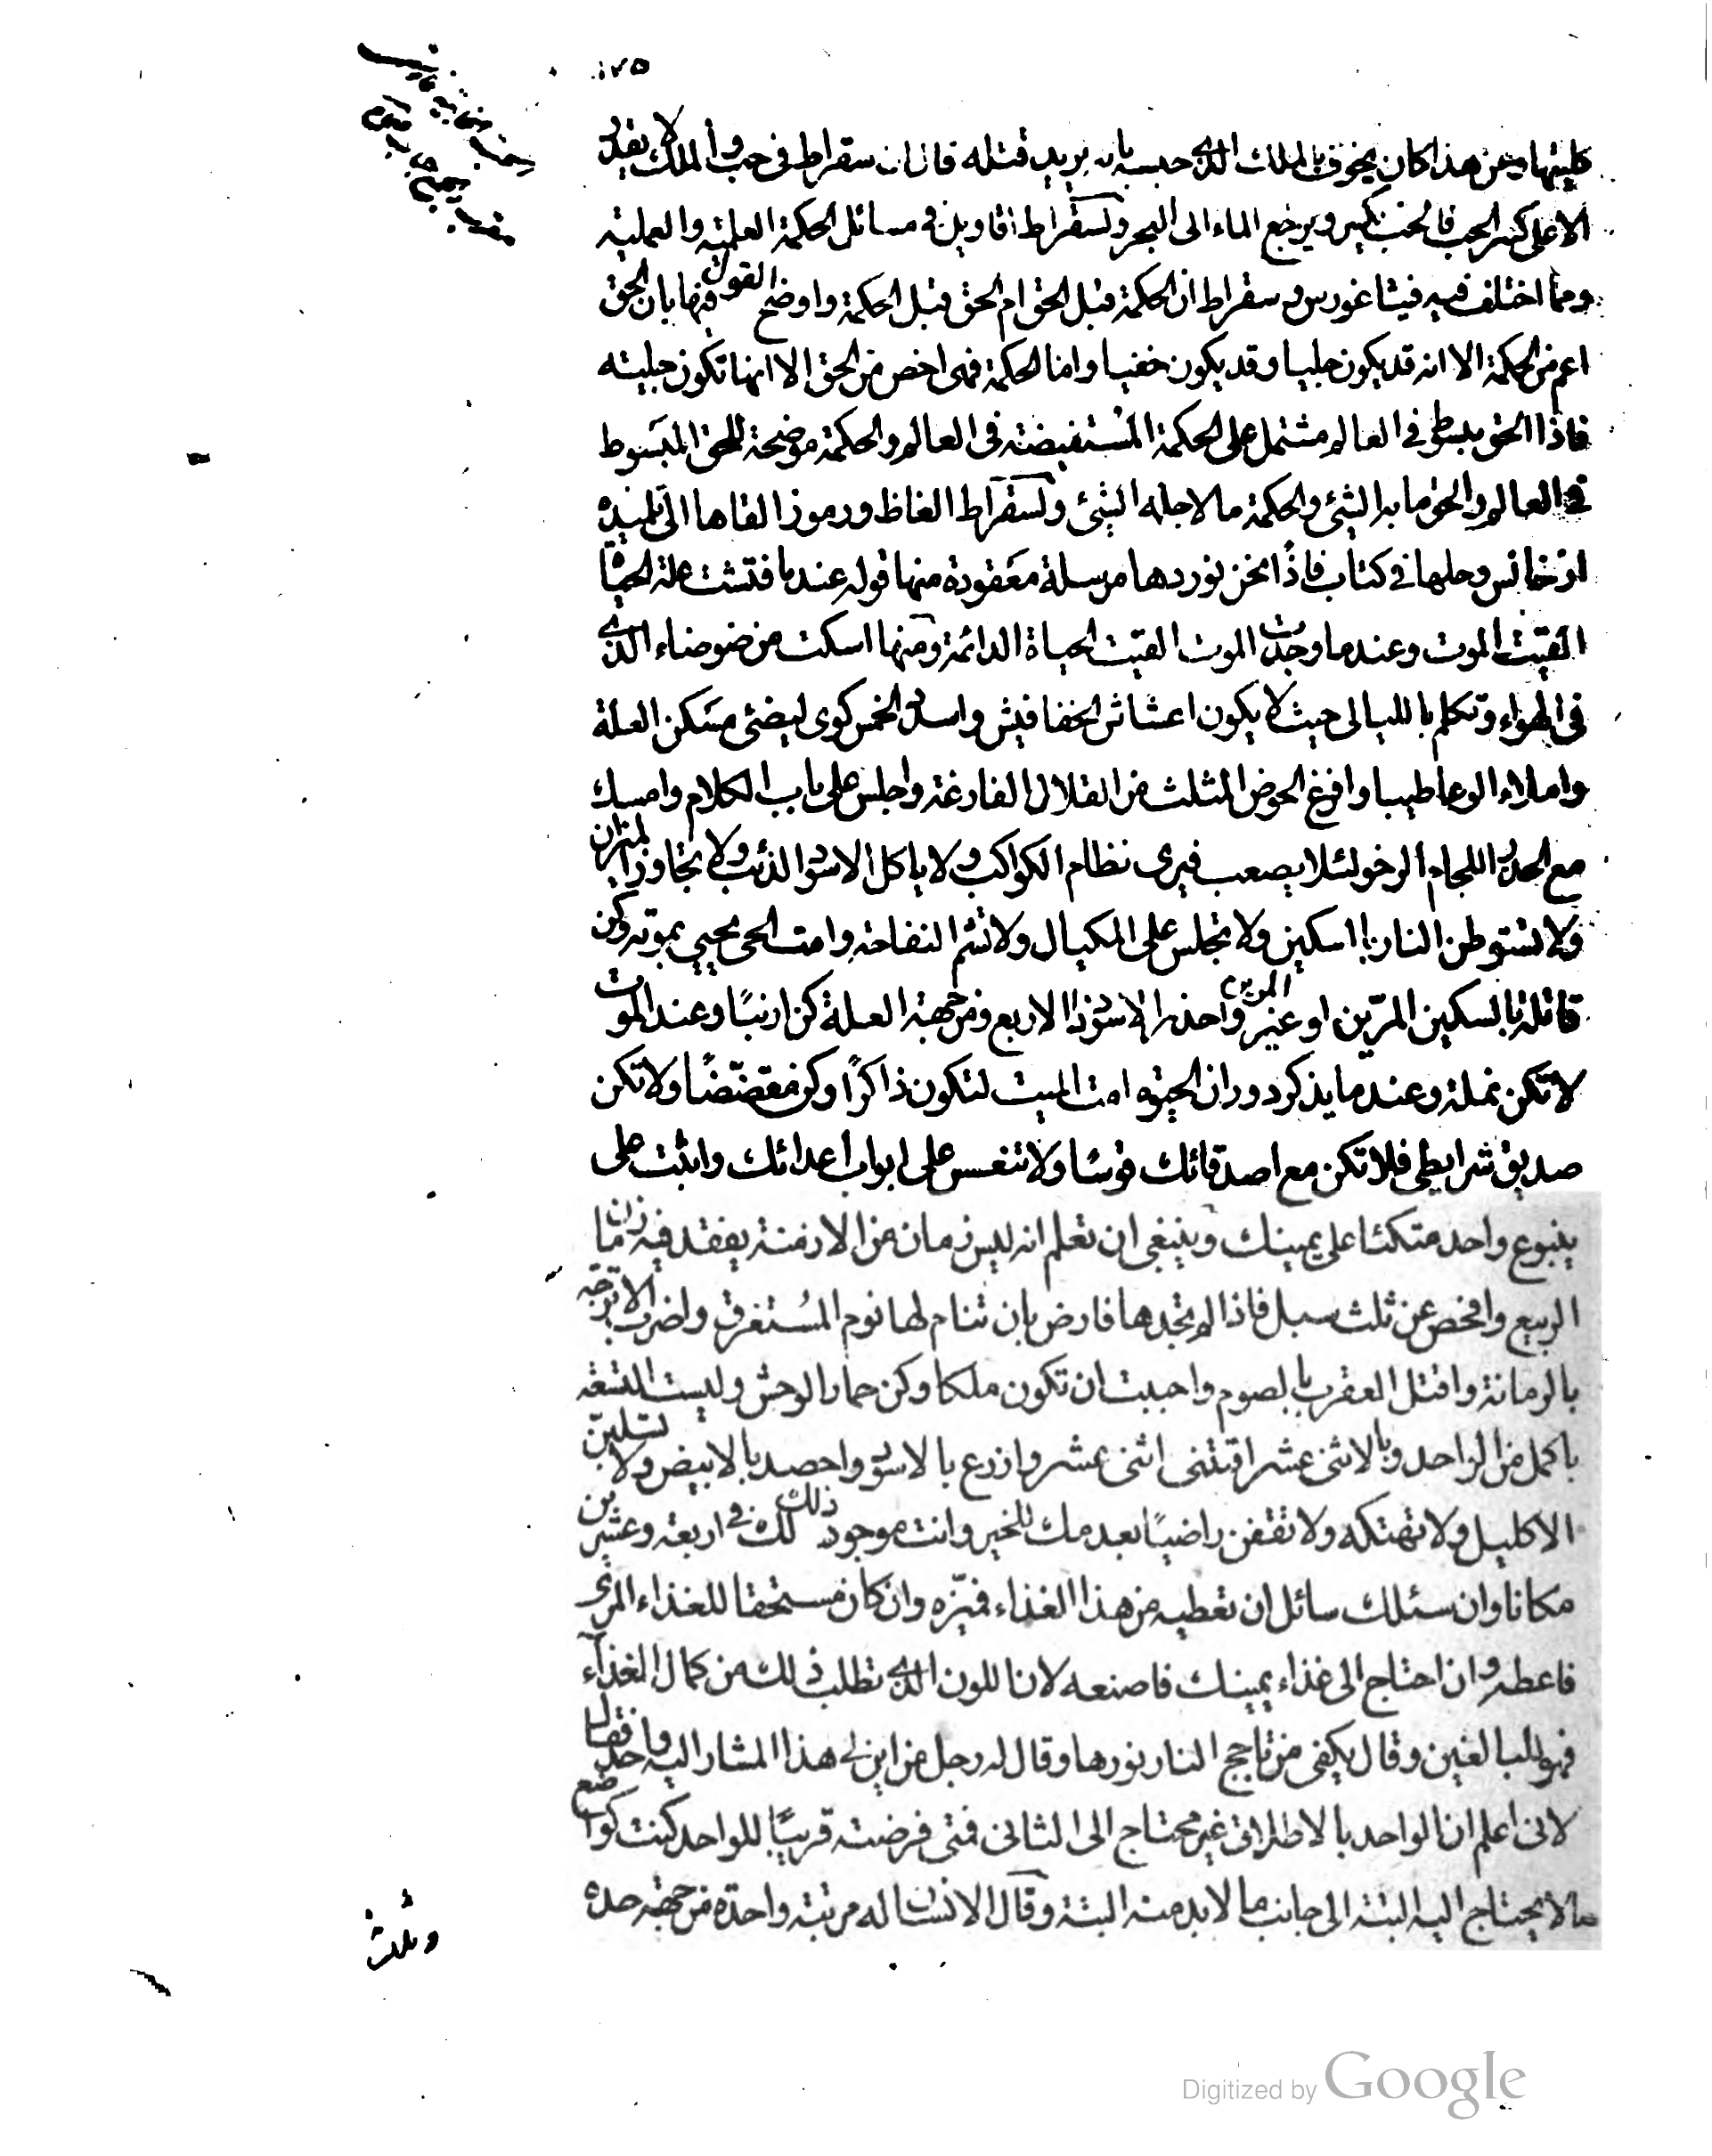 ١٧٥
كليتها وعن هذا كان يخوف بالملك الذى حبسه بانه يريد قتله قال ان سقراط فى حب والملك لا يقدر
الا على كسر الحب فالحب يكسر ويرجع الماء الى البحر ولسقراط اقاويل فى مسائل الحكمة العلمية والعملية
ومما اختلف فيه فيثاغورس وسقراط ان الحكمة قبل الحق ام الحق قبل الحكمة واوضح القول فيها بان الحق
اعم من الحكمة الا انه قد يكون جليا وقد يكون خفيا واما الحكمة فهى اخص من الحق الا انها تكون جلية
فاذا الحق مبسوط فى العالم مشتمل على الحكمة المستفيضة فى العالم والحكمة موضحة للحق المبسوط
فى العالم والحق ما به الشئ والحكمة ما لاجله الشئ ولسقراط الغاظ ورموز القاها الى تلميذه
ارخانس وحلها فى كتاب فاذًا نحن نوردها مرسلة معقودة منها قوله عند ما فتشت علة الحياة
القيت الموت وعندما وجدت الموت القيت الحياة الدائمة ومنها اسكت من ضوضاء الذى
فى الهواء وتكلم بالليالى حيث لا يكون اعشاش الخفافيش واسدل الخمس كوى ليضئ مسكن العلة
واملاء الوعا طيبا وافرغ الحوض المثلث من القلال الفارغة واجلس على باب الكلام وامسك
مع الحذر اللجام الرخو لئلا يصعب فيرى نظام الكواكب ولا ياكل الاسود الذئب ولا تجاوز الميزان
ولا تستوطن النار باسكين ولا تجلس على المكيال ولا تشم التفاحة وامت الحى يحيى بموته وكن
قاتله بالسكين المزين او غير المزين واحذر الاسود ذا الاربع ومن جهة العلة كن ارنبًا وعند الموت
لا تكن نملة وعندما يذكر دوران الحيوة امت الميت لتكون ذاكرًا وكن مقضضًا ولا تكن
صديق شرايطى فلا تكن مع اصدقائك قوسًا ولا تنعس على ابواب اعدائك واثبت على
ينبوع واحد متكئا على يمينك وينبغى ان تعلم انه ليس زمان من الازمنة يفقد فيه زمان
الربيع وافحص عن ثلث سبل فاذا لم تجدها فارض بان تنام لها نوم المستغرق واضرب الاترجة
بالرمانة واقتل العقرب بالصوم واحببت ان تكون ملكا وكن حمار الوحش وليست التسعة
باكمل من الواحد وبالاثنى عشر اقتنى اثنى عشر وازرع بالاسود واحصد بالابيض ولا تسلبن
الاكليل ولا تهتكه ولا تقفن راضيًا بعدمك للخير وانت موجود ذلك لك فى اربعة وعشرين
مكانا وان سئلك سائل ان تعطيه من هذا الغذاء فميّزه وان كان مستحقا للغذاء المرى
فاعطه وان احتاج الى غذاء يمينك فاصنعه لان اللون الذى تطلب ذلك من كمال الغذاء
فهو للبالغين وقال يكفى من تاجج النار نورها وقال له رجل من اين لى هذا المشار اليه واحد فقال
لانى اعلم ان الواحد بالاطلاق غير محتاج الى الثانى فمتى فرضته قريبًا للواحد كنت كواضع
ما لا يحتاج اليه البتة الى جانب ما لا بد منه البتة وقال الانسان له مرتبة واحدة من جهة حده
وثلث
Digitized by Google